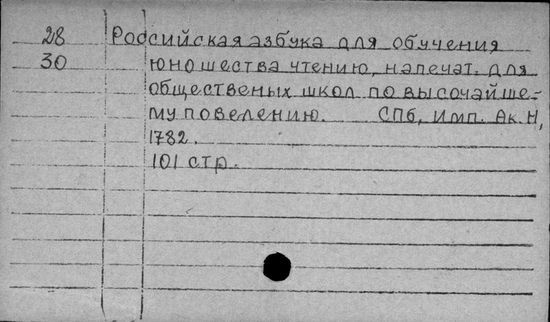 28 Российская азбука для обучения
30 юношества чтению, напечат. для
общественых школ по высочайше-
му повелению. СПб, Имп. Ак. Н,
1782.
101 стр.